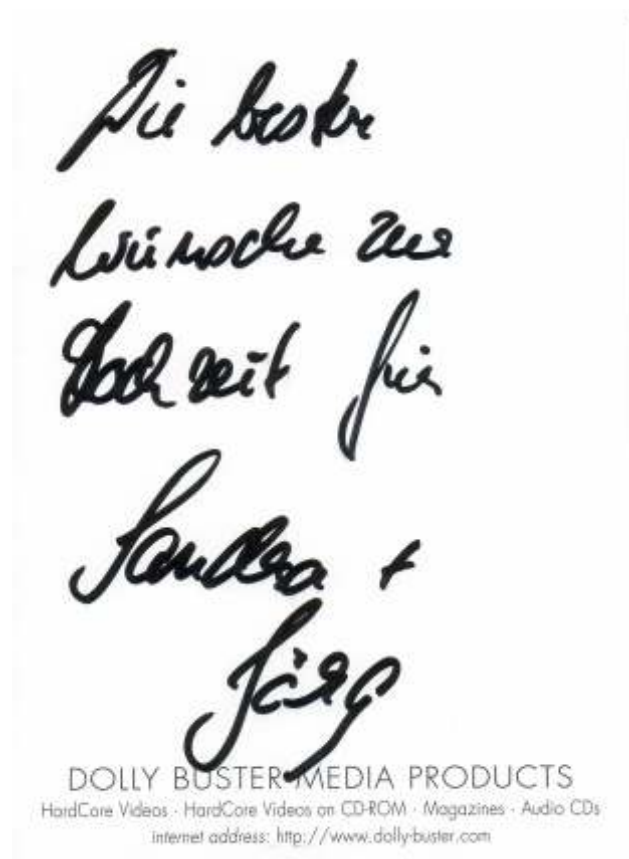 Die besten
Wünsche zur
Hochzeit für
Sandra +
Jörg
DOLLY BUSTER MEDIA PRODUCTS
HardCore Videos · HardCore Videos on CD-ROM · Magazines · Audio CDs
internet address: http://www.dolly-buster.com